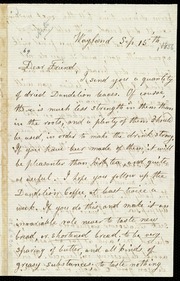 Wayland Sep. 15th
Dear Friend,
I send you a quantity
of dried Dandelion leaves. Of course,
there is much less strength in them than
in the roots, and a plenty of them should
be used, in order to make the drink strong.
If you have beer made of them it will
be pleasanter than tea, and quite
as useful. I hope you follow up the
Dandelion Coffee at least twice a
week. If you do this, and make it an
invariable rule never to taste new
bread, or shortened bread, to be very
sparing of butter, and all kinds of
greasy substances, to taste nothing